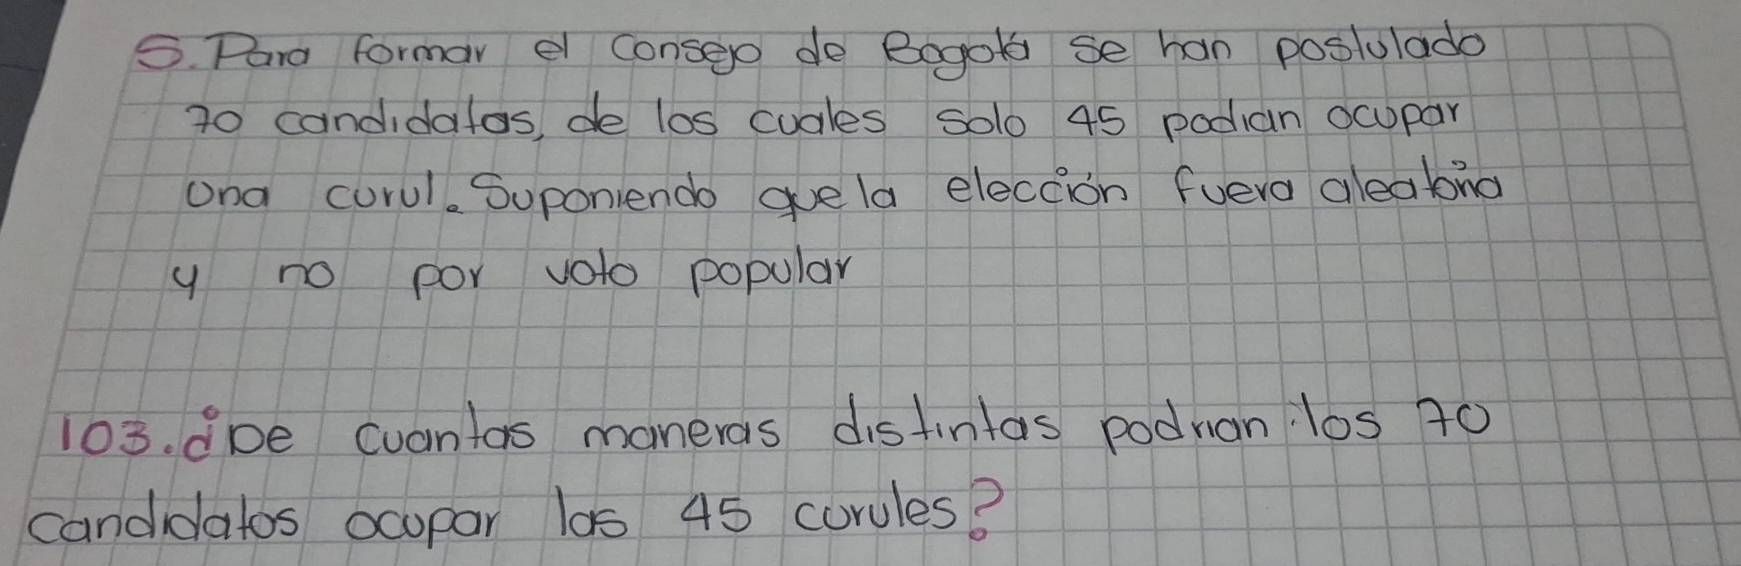 5. Para formar el consejo de Bogotá se han postulado
70 candidatos, de los cuales solo 45 podian ocupar
una curul. Suponiendo que la elección fuera aleatoria
y no por voto popular
103. ¿De cuantas maneras distintas podrian los 70
candidatos ocupar las 45 curules?